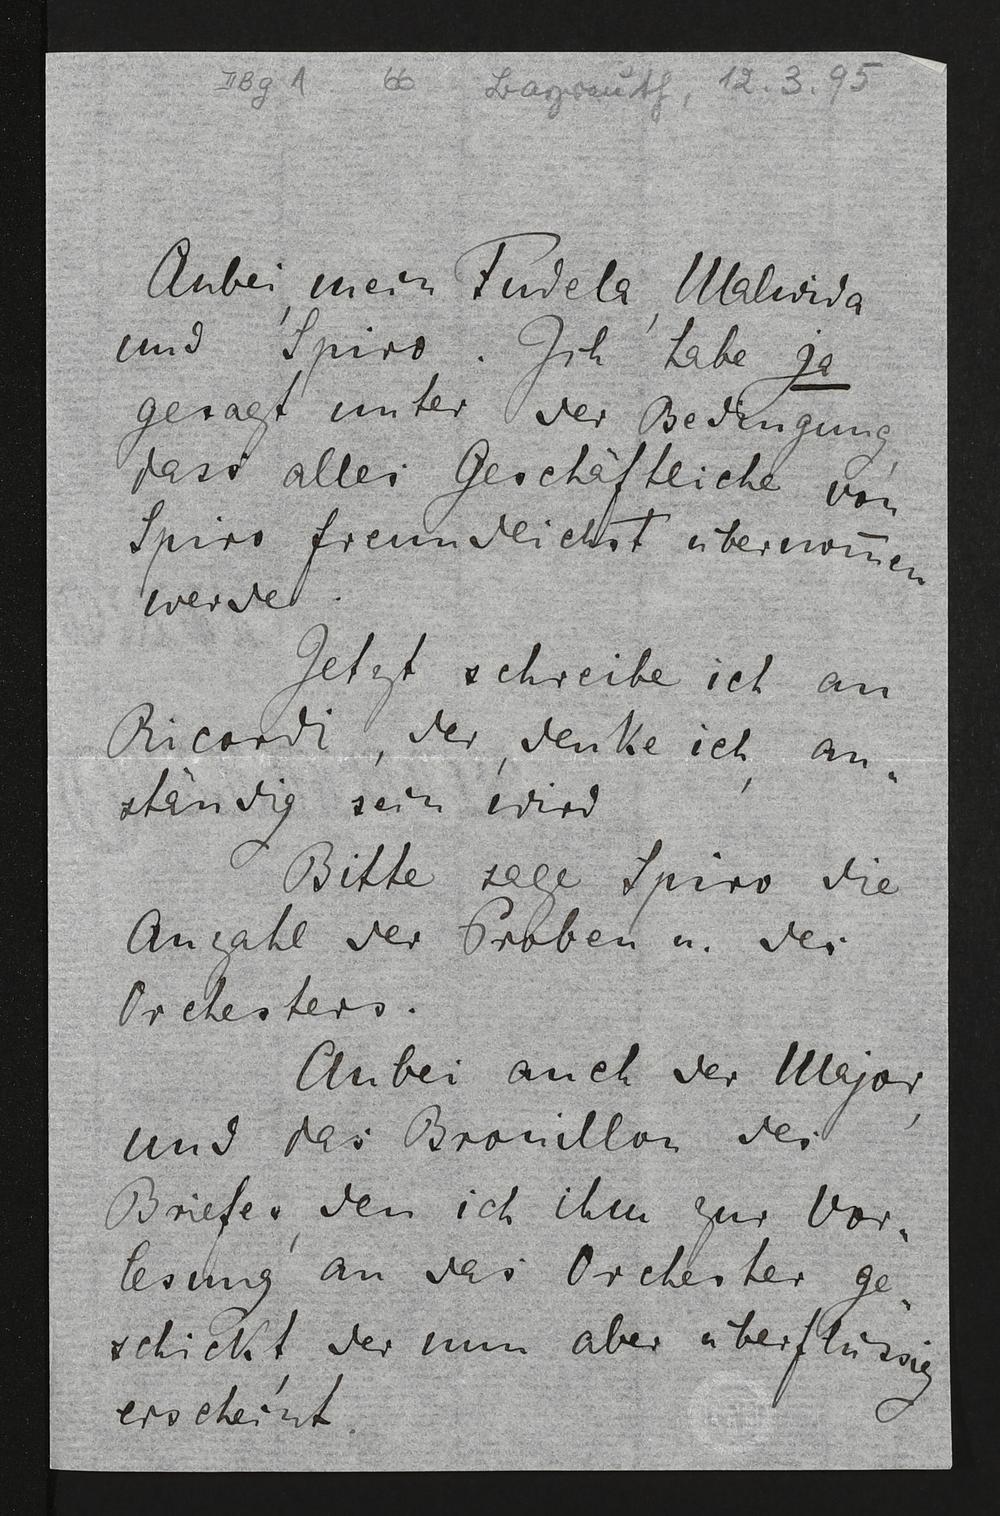 II Bg 1 66 Bayreuth, 12.3.95
Anbei, mein Fudela, Malwida
und Spiro. Ich habe ja
gesagt unter der Bedingung,
dass alles Geschäftliche von
Spiro freundlichst übernom̄en
werde.
Jetzt schreibe ich an
Ricordi, der, denke ich, an-
ständig sein wird
Bitte sage Spiro die
Anzahl der Proben u. des
Orchesters.
Anbei auch der Major,
und das Brouillon des
Briefes, den ich ihm zur Vor-
lesung an das Orchester ge-
schickt, der nun aber überflüssig
erscheint.